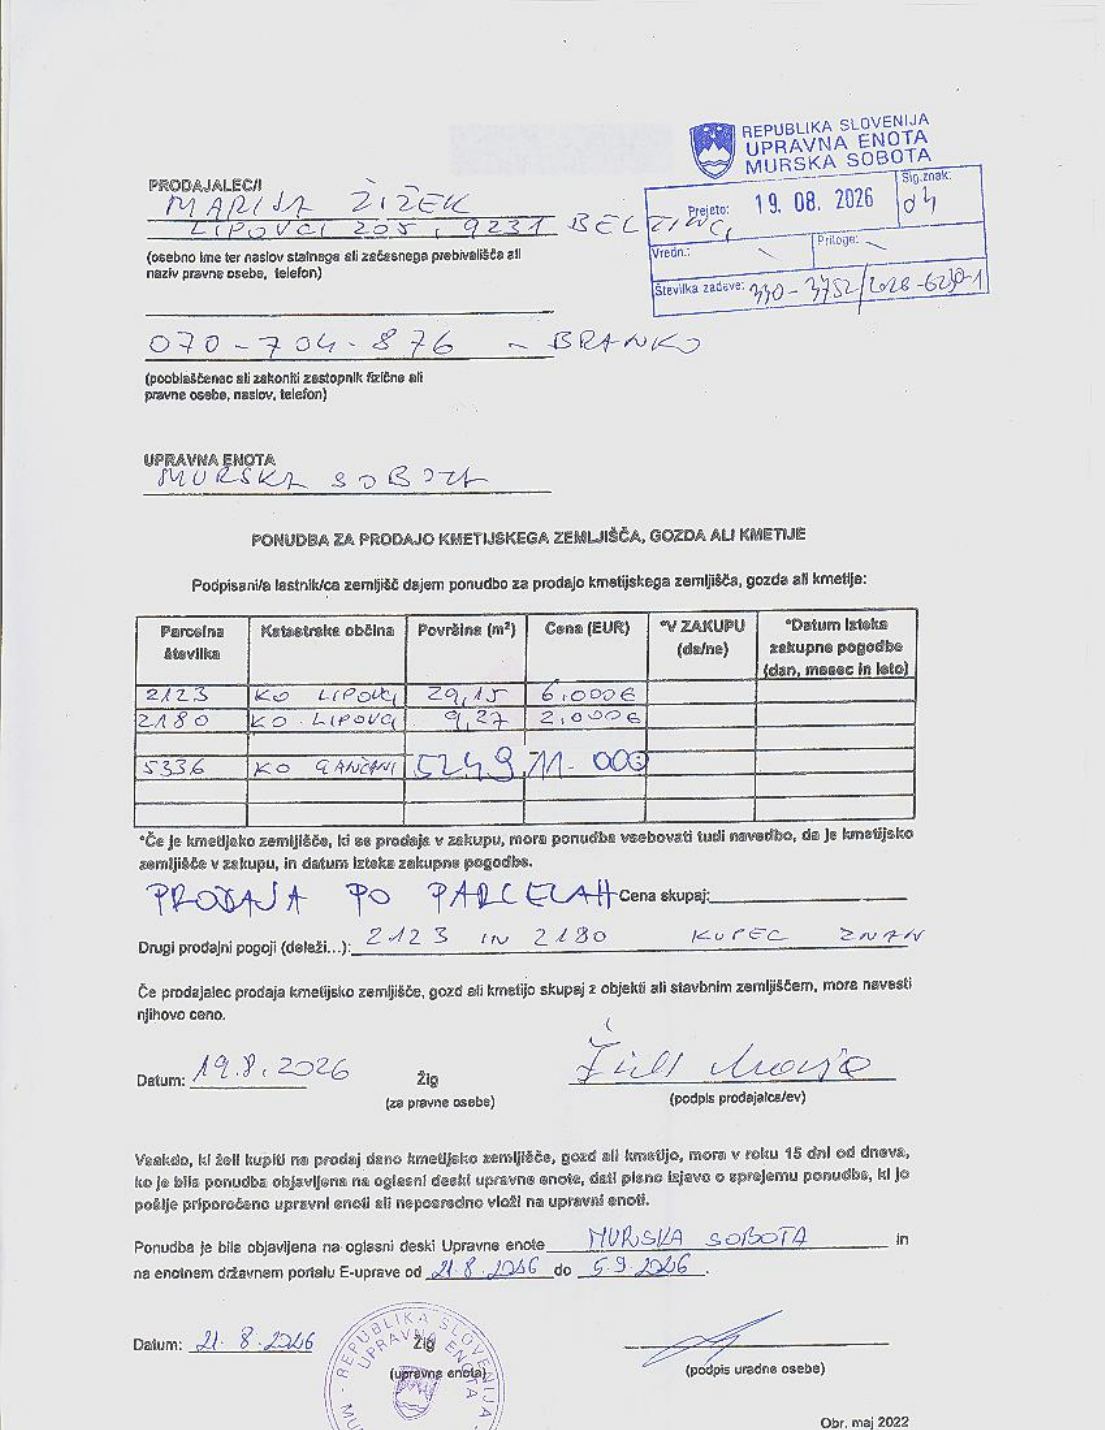 REPUBLIKA SLOVENIJA
UPRAVNA ENOTA
MURSKA SOBOTA
Prejeto: 19. 08. 2026 Sig.znak: 04
Vredn.: Priloge:
Številka zadeve: 330-3752/2026-6230-1
PRODAJALEC/I
MARIJA ŽIŽEK
LIPOVCI 205, 9231 BELTINCI
(osebno ime ter naslov stalnega ali začasnega prebivališča ali
naziv pravne osebe, telefon)
070-704-876 - BRANKO
(pooblaščenec ali zakoniti zastopnik fizične ali
pravne osebe, naslov, telefon)
UPRAVNA ENOTA
MURSKA SOBOTA
PONUDBA ZA PRODAJO KMETIJSKEGA ZEMLJIŠČA, GOZDA ALI KMETIJE
Podpisani/a lastnik/ca zemljišč dajem ponudbo za prodajo kmetijskega zemljišča, gozda ali kmetije:
Parcelna številka Katastrska občina Površina (m²) Cena (EUR) *V ZAKUPU (da/ne) *Datum izteka zakupne pogodbe (dan, mesec in leto)
2123 KO LIPOVCI 29,15 6.000€
2180 KO LIPOVCI 9,27 2.000€
5336 KO GANČANI 5249 11.000
*Če je kmetijsko zemljišče, ki se prodaja v zakupu, mora ponudba vsebovati tudi navedbo, da je kmetijsko
zemljišče v zakupu, in datum izteka zakupne pogodbe.
PRODAJA PO PARCELAH Cena skupaj:
Drugi prodajni pogoji (deleži...): 2123 IN 2180 KUPEC ZNAN
Če prodajalec prodaja kmetijsko zemljišče, gozd ali kmetijo skupaj z objekti ali stavbnim zemljiščem, mora navesti
njihovo ceno.
Datum: 19.8.2026 Žig
(za pravne osebe) (podpis prodajalca/ev)
Vsakdo, ki želi kupiti na prodaj dano kmetijsko zemljišče, gozd ali kmetijo, mora v roku 15 dni od dneva,
ko je bila ponudba objavljena na oglasni deski upravne enote, dati pisno izjavo o sprejemu ponudbe, ki jo
pošlje priporočeno upravni enoti ali neposredno vloži na upravni enoti.
Ponudba je bila objavljena na oglasni deski Upravne enote MURSKA SOBOTA in
na enotnem državnem portalu E-uprave od 21.8.2026 do 5.9.2026.
Datum: 21.8.2026 Žig
(upravna enota) (podpis uradne osebe)
REPUBLIKA SLOVENIJA
UPRAVNA ENOTA
Obr. maj 2022